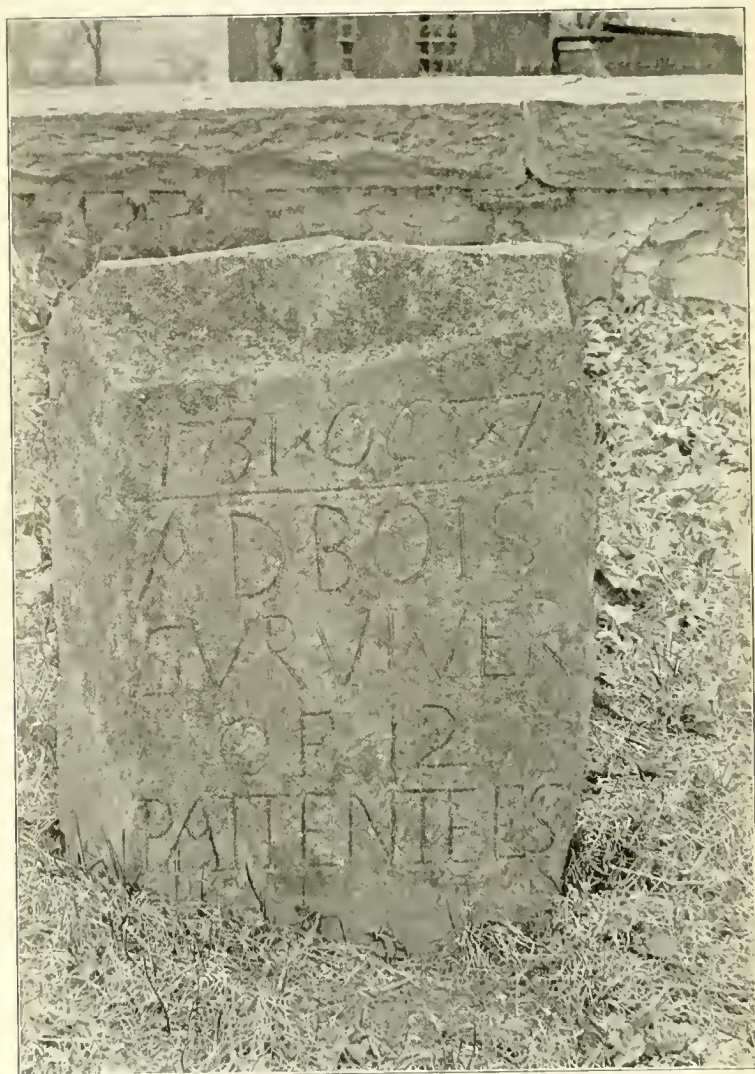 1731×OCT×7
AD BOIS
SVRVIVER
OF 12
PATTENTEES